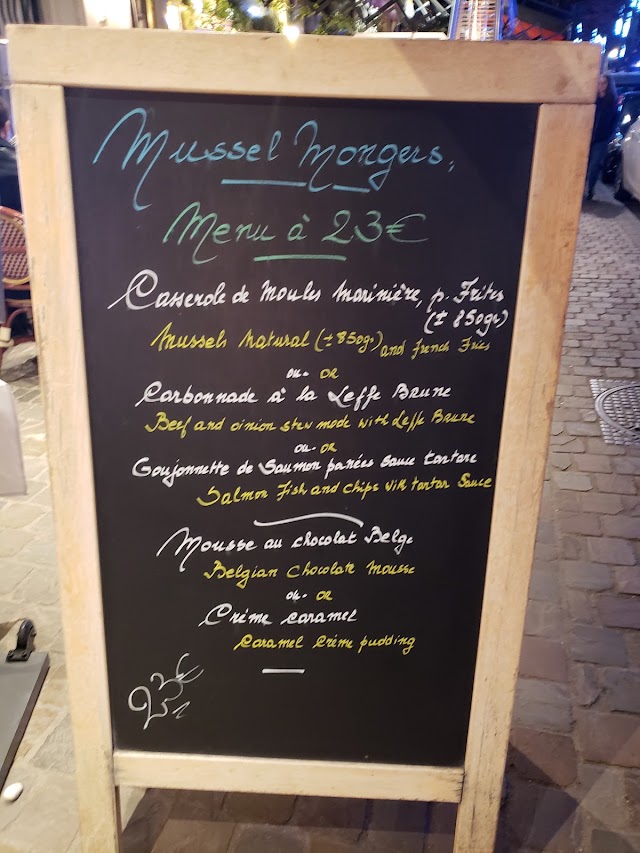 Mussel Mongers,
Menu à 23€
Casserole de Moules Marinière, p. Frites
(± 850gr)
Mussels Natural (± 850gr) and french Fries
ou - OR
Carbonnade à la Leffe Brune
Beef and oinion stew made with Leffe Brune
ou - OR
Goujonnette de Saumon panées sauce tartare
Salmon Fish and chips with tartar Sauce
Mousse au chocolat Belge
Belgian chocolate mousse
ou - OR
Crème caramel
Caramel Crème pudding
23€